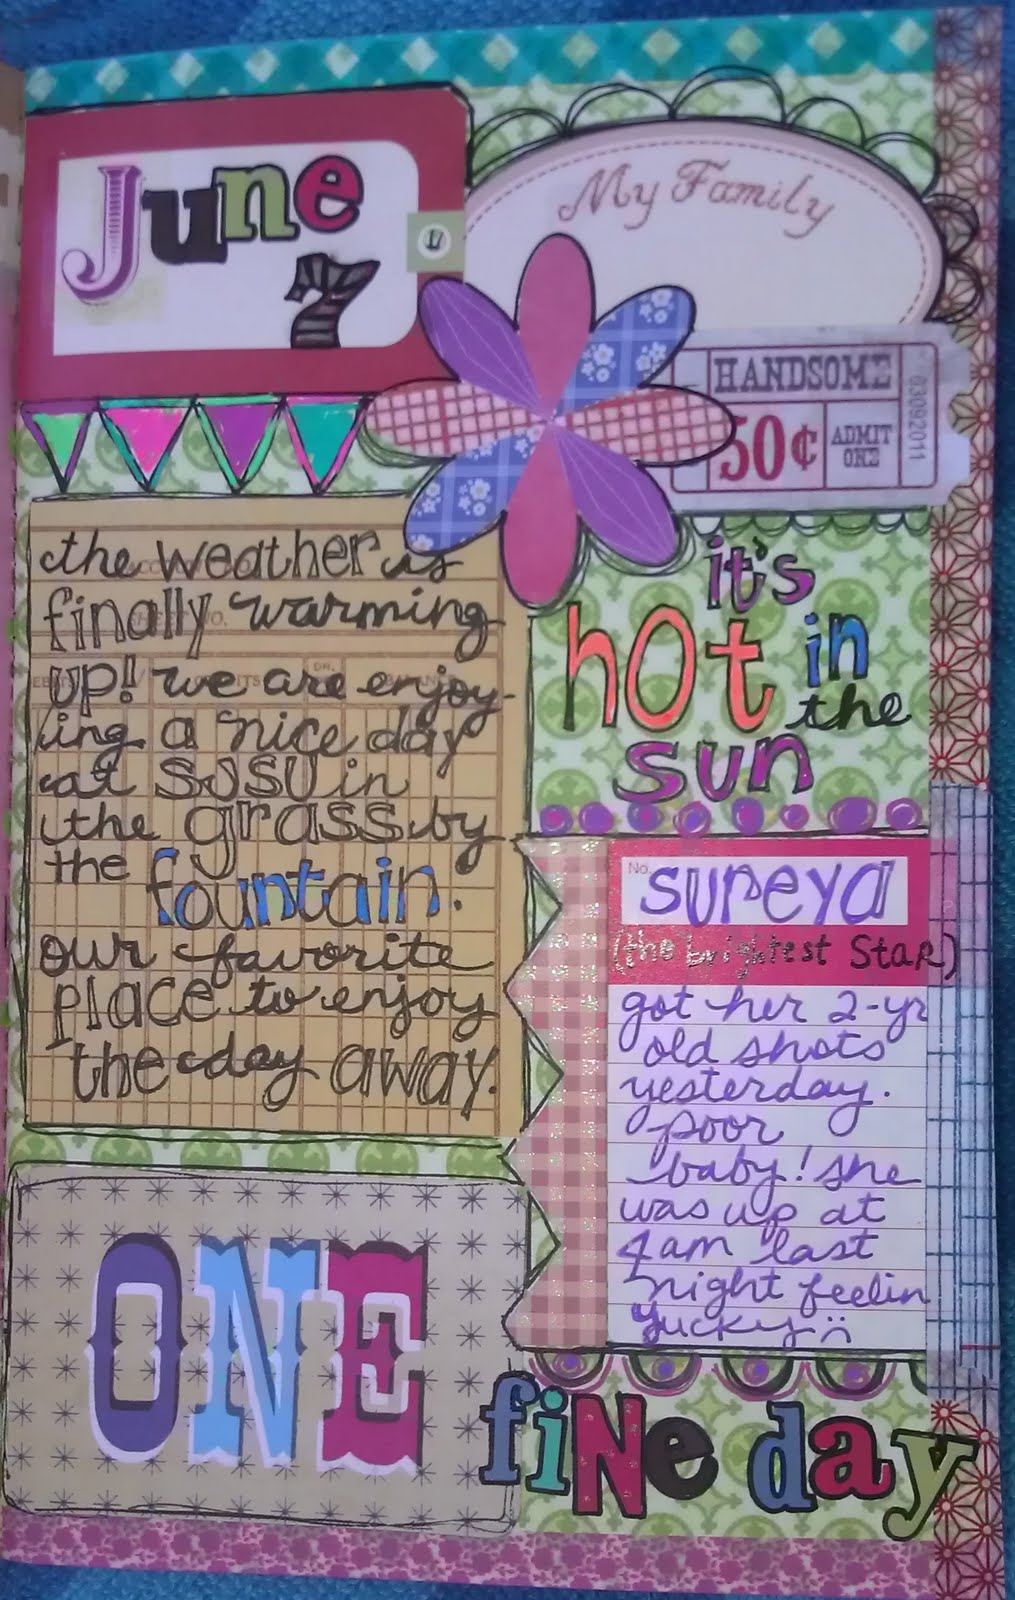 June
7
My Family
HANDSOME
50¢
ADMIT
ONE
03092011
the weather is
finally warming
up! we are enjoy-
ing a nice day
at SJSU in
the grass by
the fountain.
our favorite
place to enjoy
the day away.
it's
hot in
the
sun
No.
sureya
(the brightest Star)
got her 2-yr
old shots
yesterday.
poor
baby! she
was up at
4am last
night feelin
yucky :(
ONE
fine day